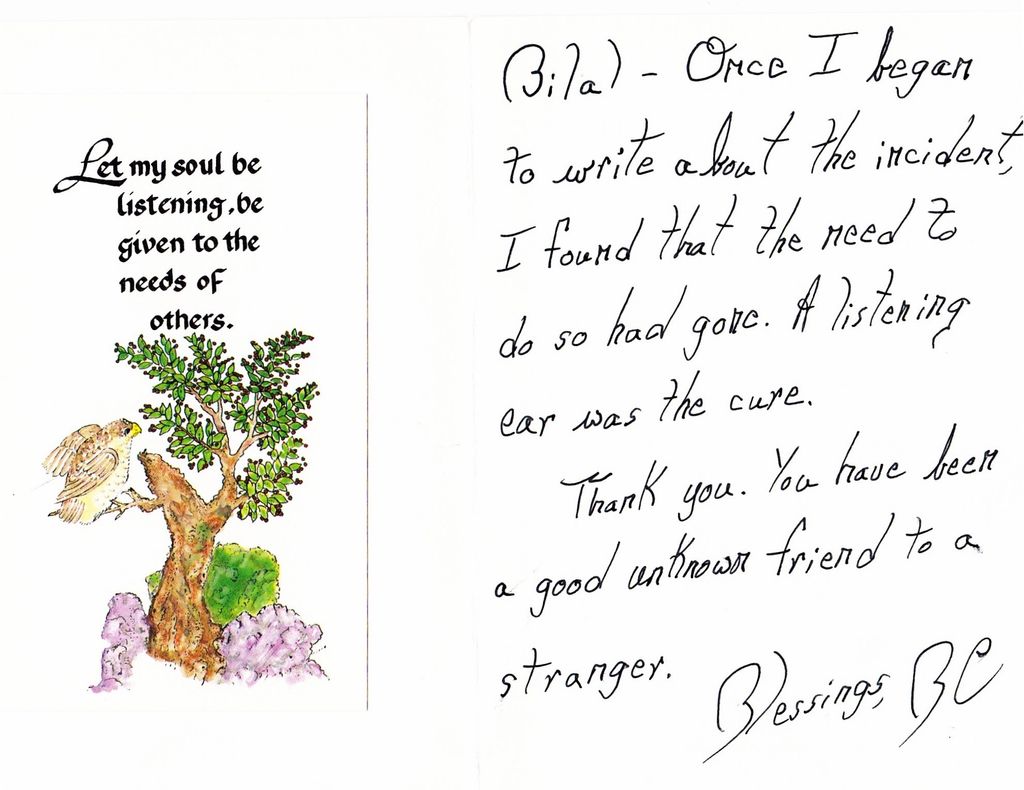 Let my soul be
listening, be
given to the
needs of
others.
(Bila) - Once I began
to write about the incident,
I found that the need to
do so had gone. A listening
ear was the cure.
Thank you. You have been
a good unknown friend to a
stranger.
Blessings, BC